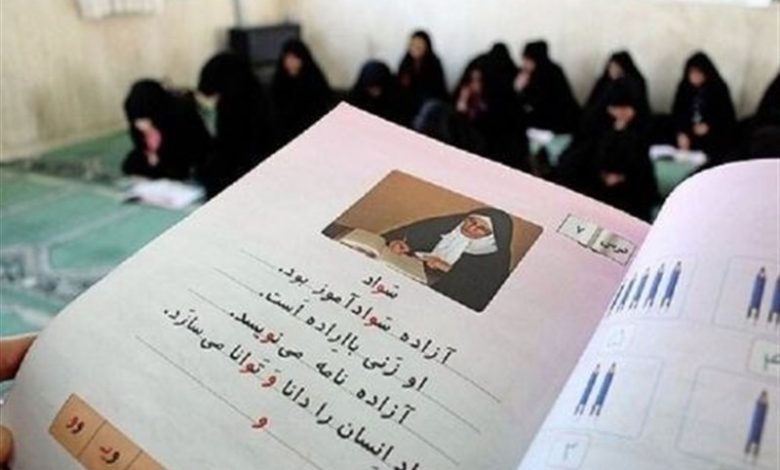 درس ۷
سَواد
آزاده سَوادآموز بود.
او زَنی بااِراده اَست.
آزاده نامه می‌نویسد.
اِنسان را دانا وَ تَوانا می‌سازَد.
و
و ـو
۲